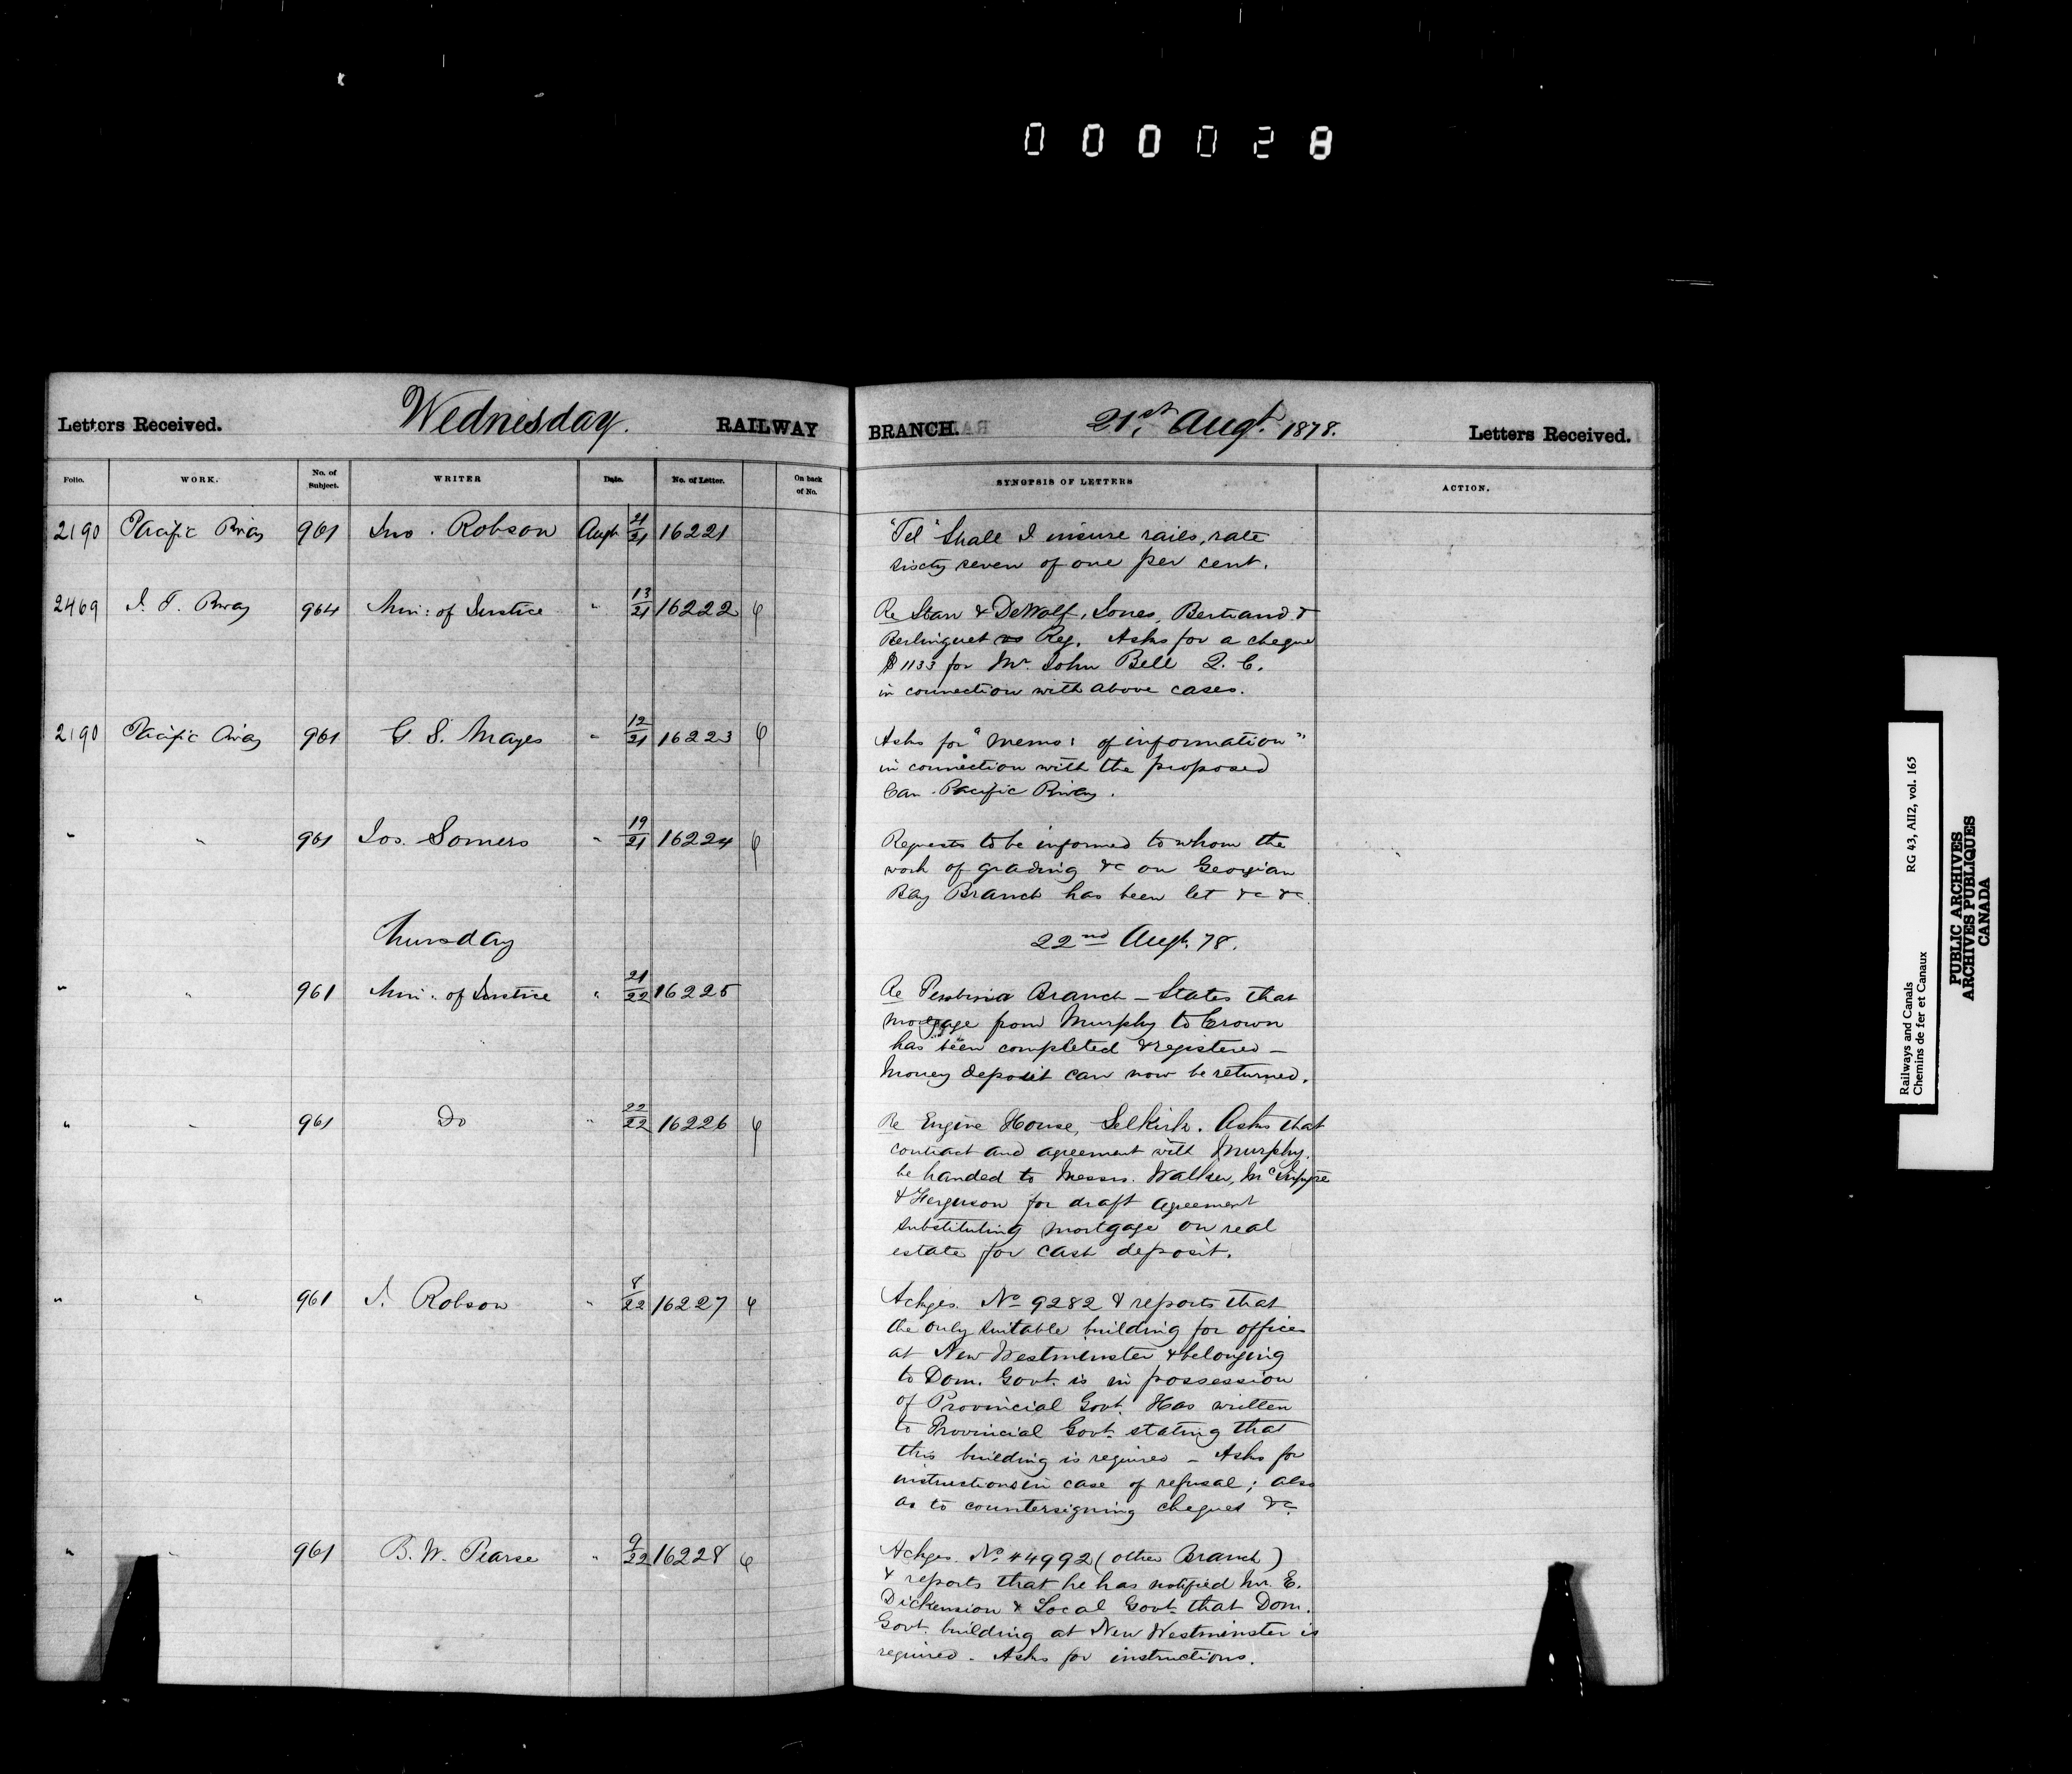 0 0 0 0 2 8
Letters Received. Wednesday. RAILWAY
BRANCH. 21st Augt. 1878. Letters Received.
Folio. WORK. No. of Subject. WRITER Date. No. of Letter. On back of No.
SYNOPSIS OF LETTERS ACTION.
2190 Pacific Rway 961 Jno. Robson Augt 21/21 16221
"Tel" Shall I insure rails, rate
sixty seven of one per cent.
2469 I. C. Rway 964 Min: of Justice " 13/21 16222
Re Starr & DeWolf, Jones, Bertrand &
Berlinguet vs Reg. Asks for a cheque
$1133 for Mr. John Bell Q. C.
in connection with above cases.
2190 Pacific Rway 961 G. S. Mayes " 12/21 16223
Asks for "memo: of information"
in connection with the proposed
Can. Pacific Rway.
" " 961 Jos. Somers " 19/21 16224
Requests to be informed to whom the
work of grading &c on Georgian
Bay Branch has been let &c &c
Thursday
22nd Augt. 78.
" " 961 Min: of Justice " 21/22 16225
Re Pembina Branch – States that
mortgage from Murphy to Crown
has been completed & registered –
Money deposit can now be returned.
" " 961 Do " 22/22 16226
Re Engine House, Selkirk. Asks that
contract and agreement with Murphy.
be handed to Messrs. Walker, McIntyre
& Ferguson for draft agreement
substituting mortgage on real
estate for cash deposit.
" " 961 J. Robson " 8/22 16227
Ackges. No 9282 & reports that
the only suitable building for offices
at New Westminster & belonging
to Dom. Govt. is in possession
of Provincial Govt. Has written
to Provincial Govt. stating that
this building is required – Asks for
instructions in case of refusal; also
as to countersigning cheques &c.
" " 961 B. W. Pearse " 9/22 16228
Ackges. No. 44992 (other Branch)
& reports that he has notified Mr. E.
Dickension & Local Govt. that Dom.
Govt. building at New Westminster is
required. Asks for instructions.
Railways and Canals RG 43, AII2, vol. 165
Chemins de fer et Canaux
PUBLIC ARCHIVES
ARCHIVES PUBLIQUES
CANADA